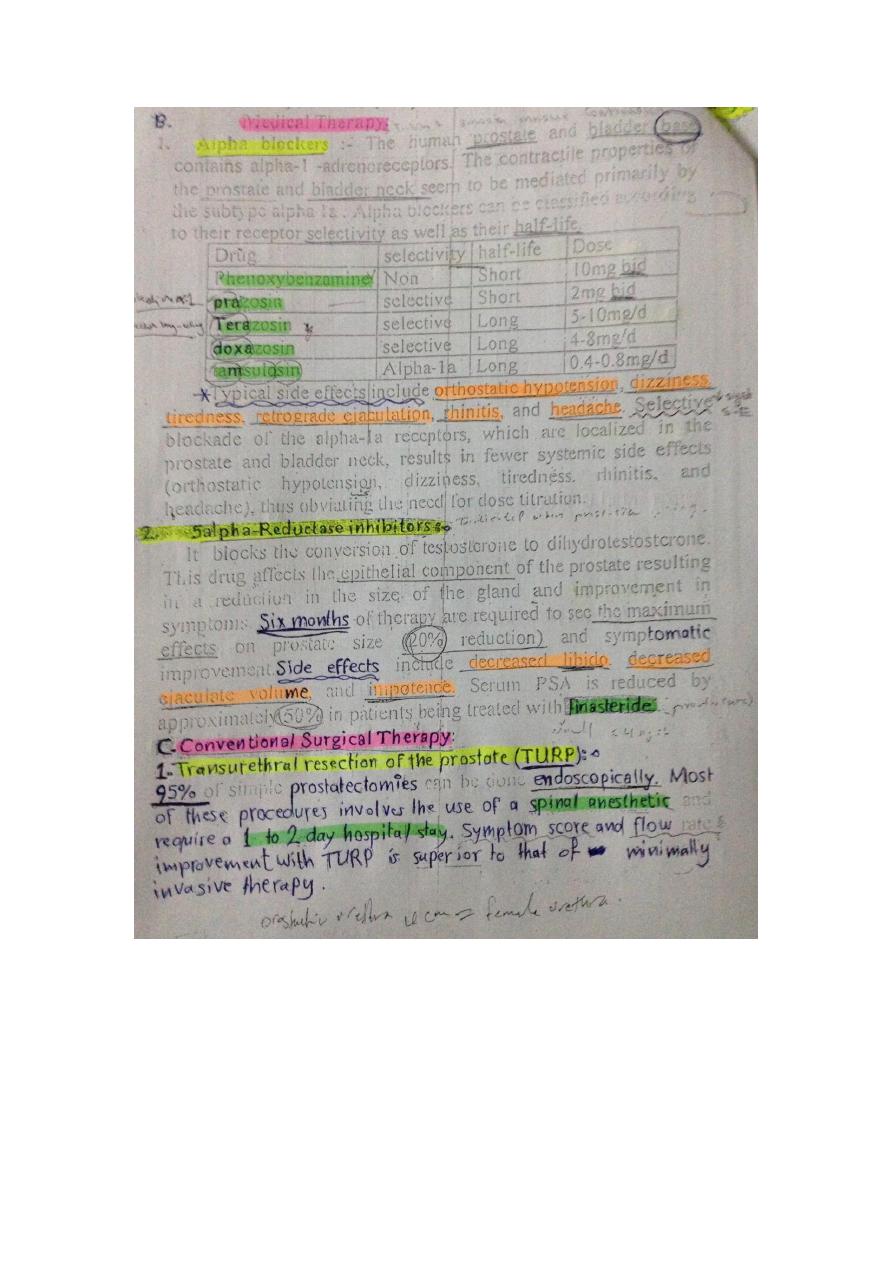 B. Medical Therapy:
1. Alpha blockers :- The human prostate and bladder base
contains alpha-1 -adrenoreceptors. The contractile properties of
the prostate and bladder neck seem to be mediated primarily by
the subtype alpha 1a . Alpha blockers can be classified according
to their receptor selectivity as well as their half-life.
Drug selectivity half-life Dose
Phenoxybenzamine Non Short 10mg bid
prazosin selective Short 2mg bid
Terazosin selective Long 5-10mg/d
doxazosin selective Long 4-8mg/d
tamsulosin Alpha-1a Long 0.4-0.8mg/d
*Typical side effects include orthostatic hypotension, dizziness,
tiredness, retrograde ejabulation, rhinitis, and headache. Selective
blockade of the alpha-1a receptors, which are localized in the
prostate and bladder neck, results in fewer systemic side effects
(orthostatic hypotension, dizziness, tiredness. rhinitis, and
headache), thus obviating the need for dose titration.
2. 5alpha-Reductase inhibitors:- Indicated when prostate
It blocks the conversion of testosterone to dihydrotestosterone.
This drug affects the epithelial component of the prostate resulting
in a reduction in the size of the gland and improvement in
symptoms. Six months of therapy are required to see the maximum
effects on prostate size (20% reduction) and symptomatic
improvement. Side effects include decreased libido, decreased
ejaculate volume, and impotence. Serum PSA is reduced by
approximately (50%) in patients being treated with finasteride.
C. Conventional Surgical Therapy:
1- Transurethral resection of the prostate (TURP):-
95% of simple prostatectomies can be done endoscopically. Most
of these procedures involves the use of a spinal anesthetic and
require a 1 to 2 day hospital stay. Symptom score and flow rate &
improvement with TURP is superior to that of minimally
invasive therapy.
urethra female urethra.